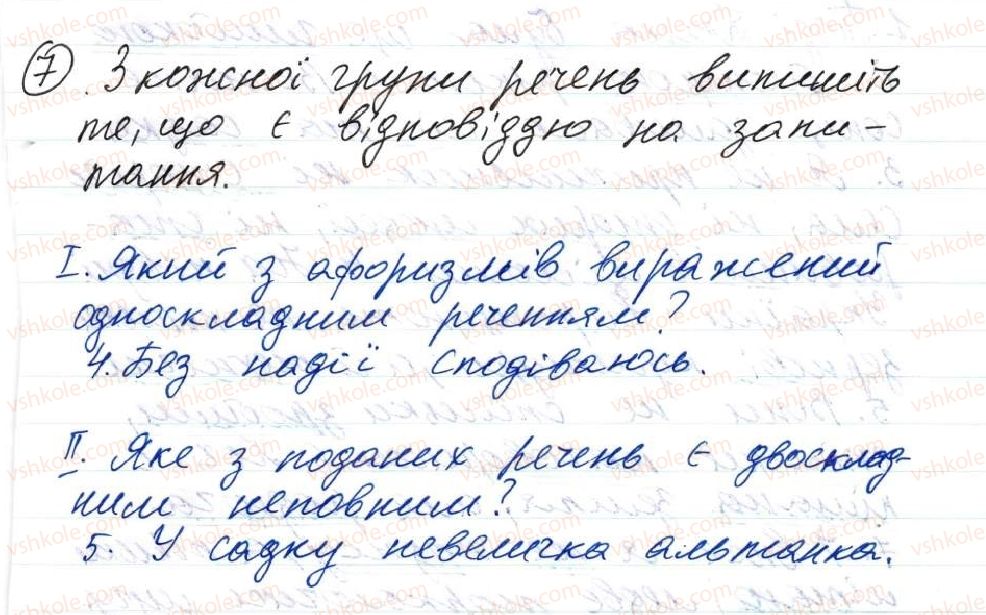 7. З кожної групи речень випишіть
те, що є відповіддю на запи-
тання.
I. Який з афоризмів виражений
односкладним реченням?
4. Без надії сподіваюсь.
II. Яке з поданих речень є двосклад-
ним неповним?
5. У садку невеличка альтанка.